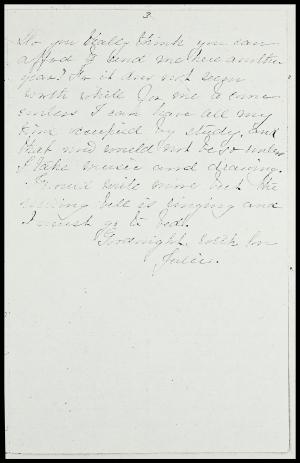 3.
Do you really think you can
afford to send me here another
year? For it does not seem
worth while for me to come
unless I can have all my
time occupied by study, and
that now would not be so unless
I take music and drawing.
I would write more but the
bell is ringing and
I must go to bed.
Goodnight.
Julia.